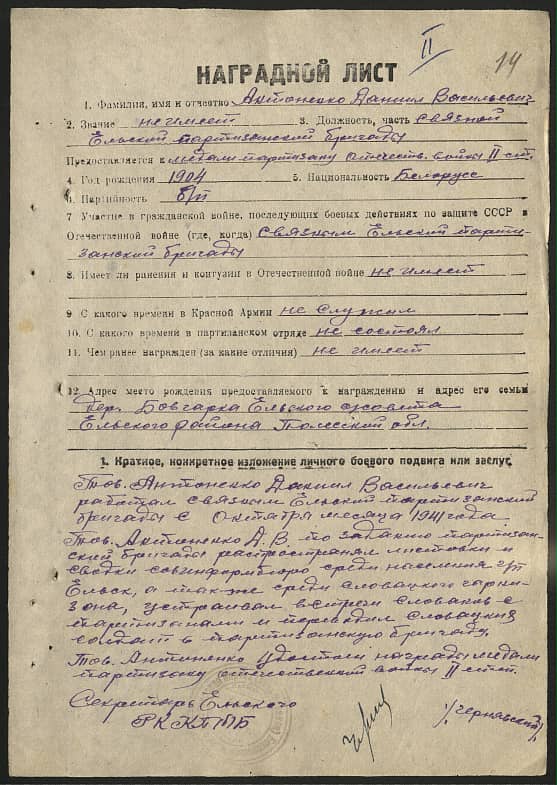 II
14
НАГРАДНОЙ ЛИСТ
1. Фамилия, имя и отчество Антоненко Даниил Васильевич
2. Звание не имеет 3. Должность, часть связной
Ельский партизанский бригады
Предоставляется к медали партизану отечеств. войны II ст.
4. Год рождения 1904 5. Национальность Белорусс
6. Партийность б/п
7 Участие в гражданской войне, последующих боевых действиях по защите СССР и
Отечественной войне (где, когда) связным Ельский парти-
занский бригады
8. Имеет ли ранения и контузии в Отечественной войне не имеет
9 С какого времени в Красной Армии не служил
10. С какого времени в партизанском отряде не состоял
11. Чем ранее награжден (за какие отличия) не имеет
12. Адрес место рождения предоставляемого к награждению и адрес его семьи
дер. Бовчарка Ельского совета
Ельского района Полесский обл.
1. Краткое, конкретное изложение личного боевого подвига или заслуг
Тов. Антоненко Даниил Васильевич
работал связным Ельский партизанский
бригады с Октября месяца 1941 года.
Тов. Антоненко Д.В. по заданию партизан-
ский бригады распространял листовки и
сводки совинформбюро среди населения г/п
Ельск, а так-же среди словацкого гарни-
зона, устраивал встречи словаков с
партизанами и переводил словацких
солдат в партизанскую бригаду.
Тов. Антоненко удостоен награды медали
партизану отечественский войны II степ.
Секретарь Ельского
РК КП/б/Б
/Чернявский/